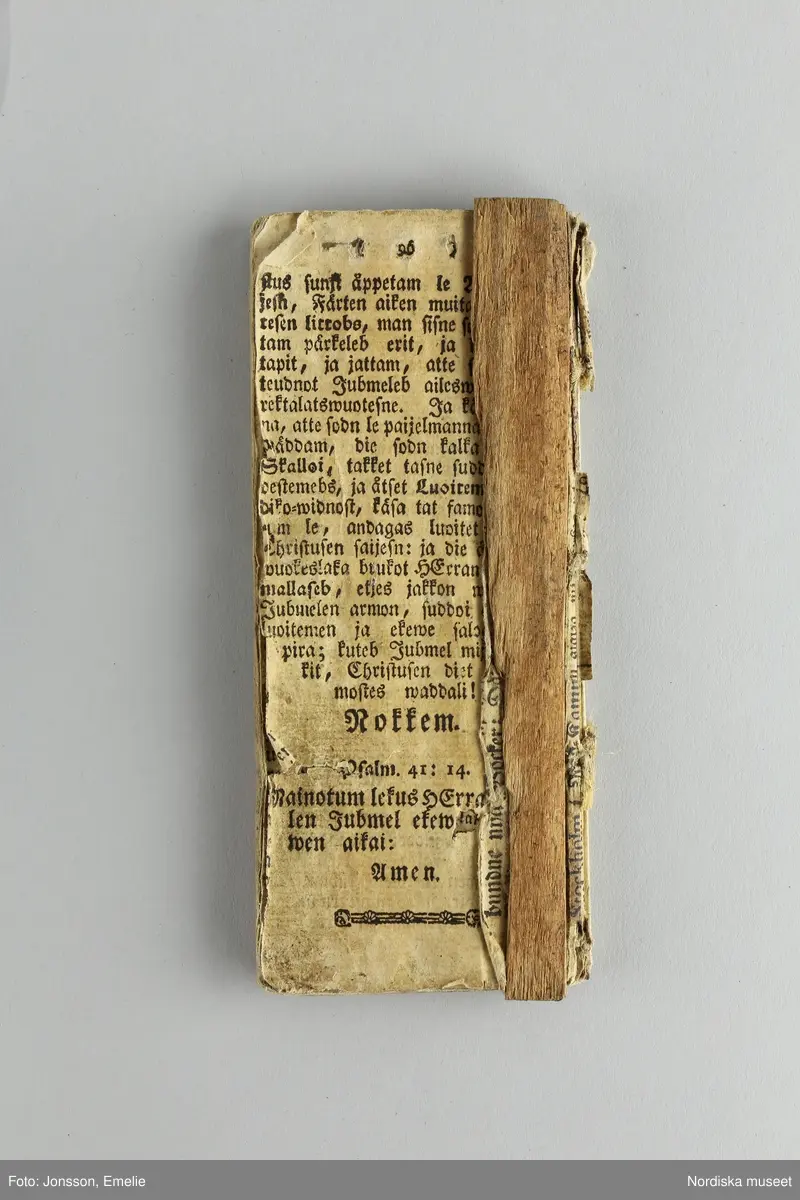 96
stus sunst åppetam le
jesn, Fårten aiken muite
resen littobs, man sisne
tam pårkeleb erit, ja
tapit, ja jattam, atte
teudnot Jubmeleb ailesw
rektalatswuotesne. Ja
na, atte sodn le paijelmanna
påddam, die sodn kalka
Skalloi, takket tasne sudd
oestemebs, ja åtset Luoitem
diko-widnost, kåsa tat famo
um le, andagas luoitet
Christusen saijesn: ja die
wuokeslaka brukot HErran
mallaseb, etjes jakkon
Jubmelen armon, suddoi
luoitemen ja ekewe
pira; kuteb Jubmel mi
kit, Christusen diet
mostes waddali!
Nokkem.
Psalm. 41: 14.
Mainotum lekus HErra
len Jubmel ekew
wen aikai:
Amen.
bundne
Stockholm
Foto: Jonsson, Emelie
Nordiska museet